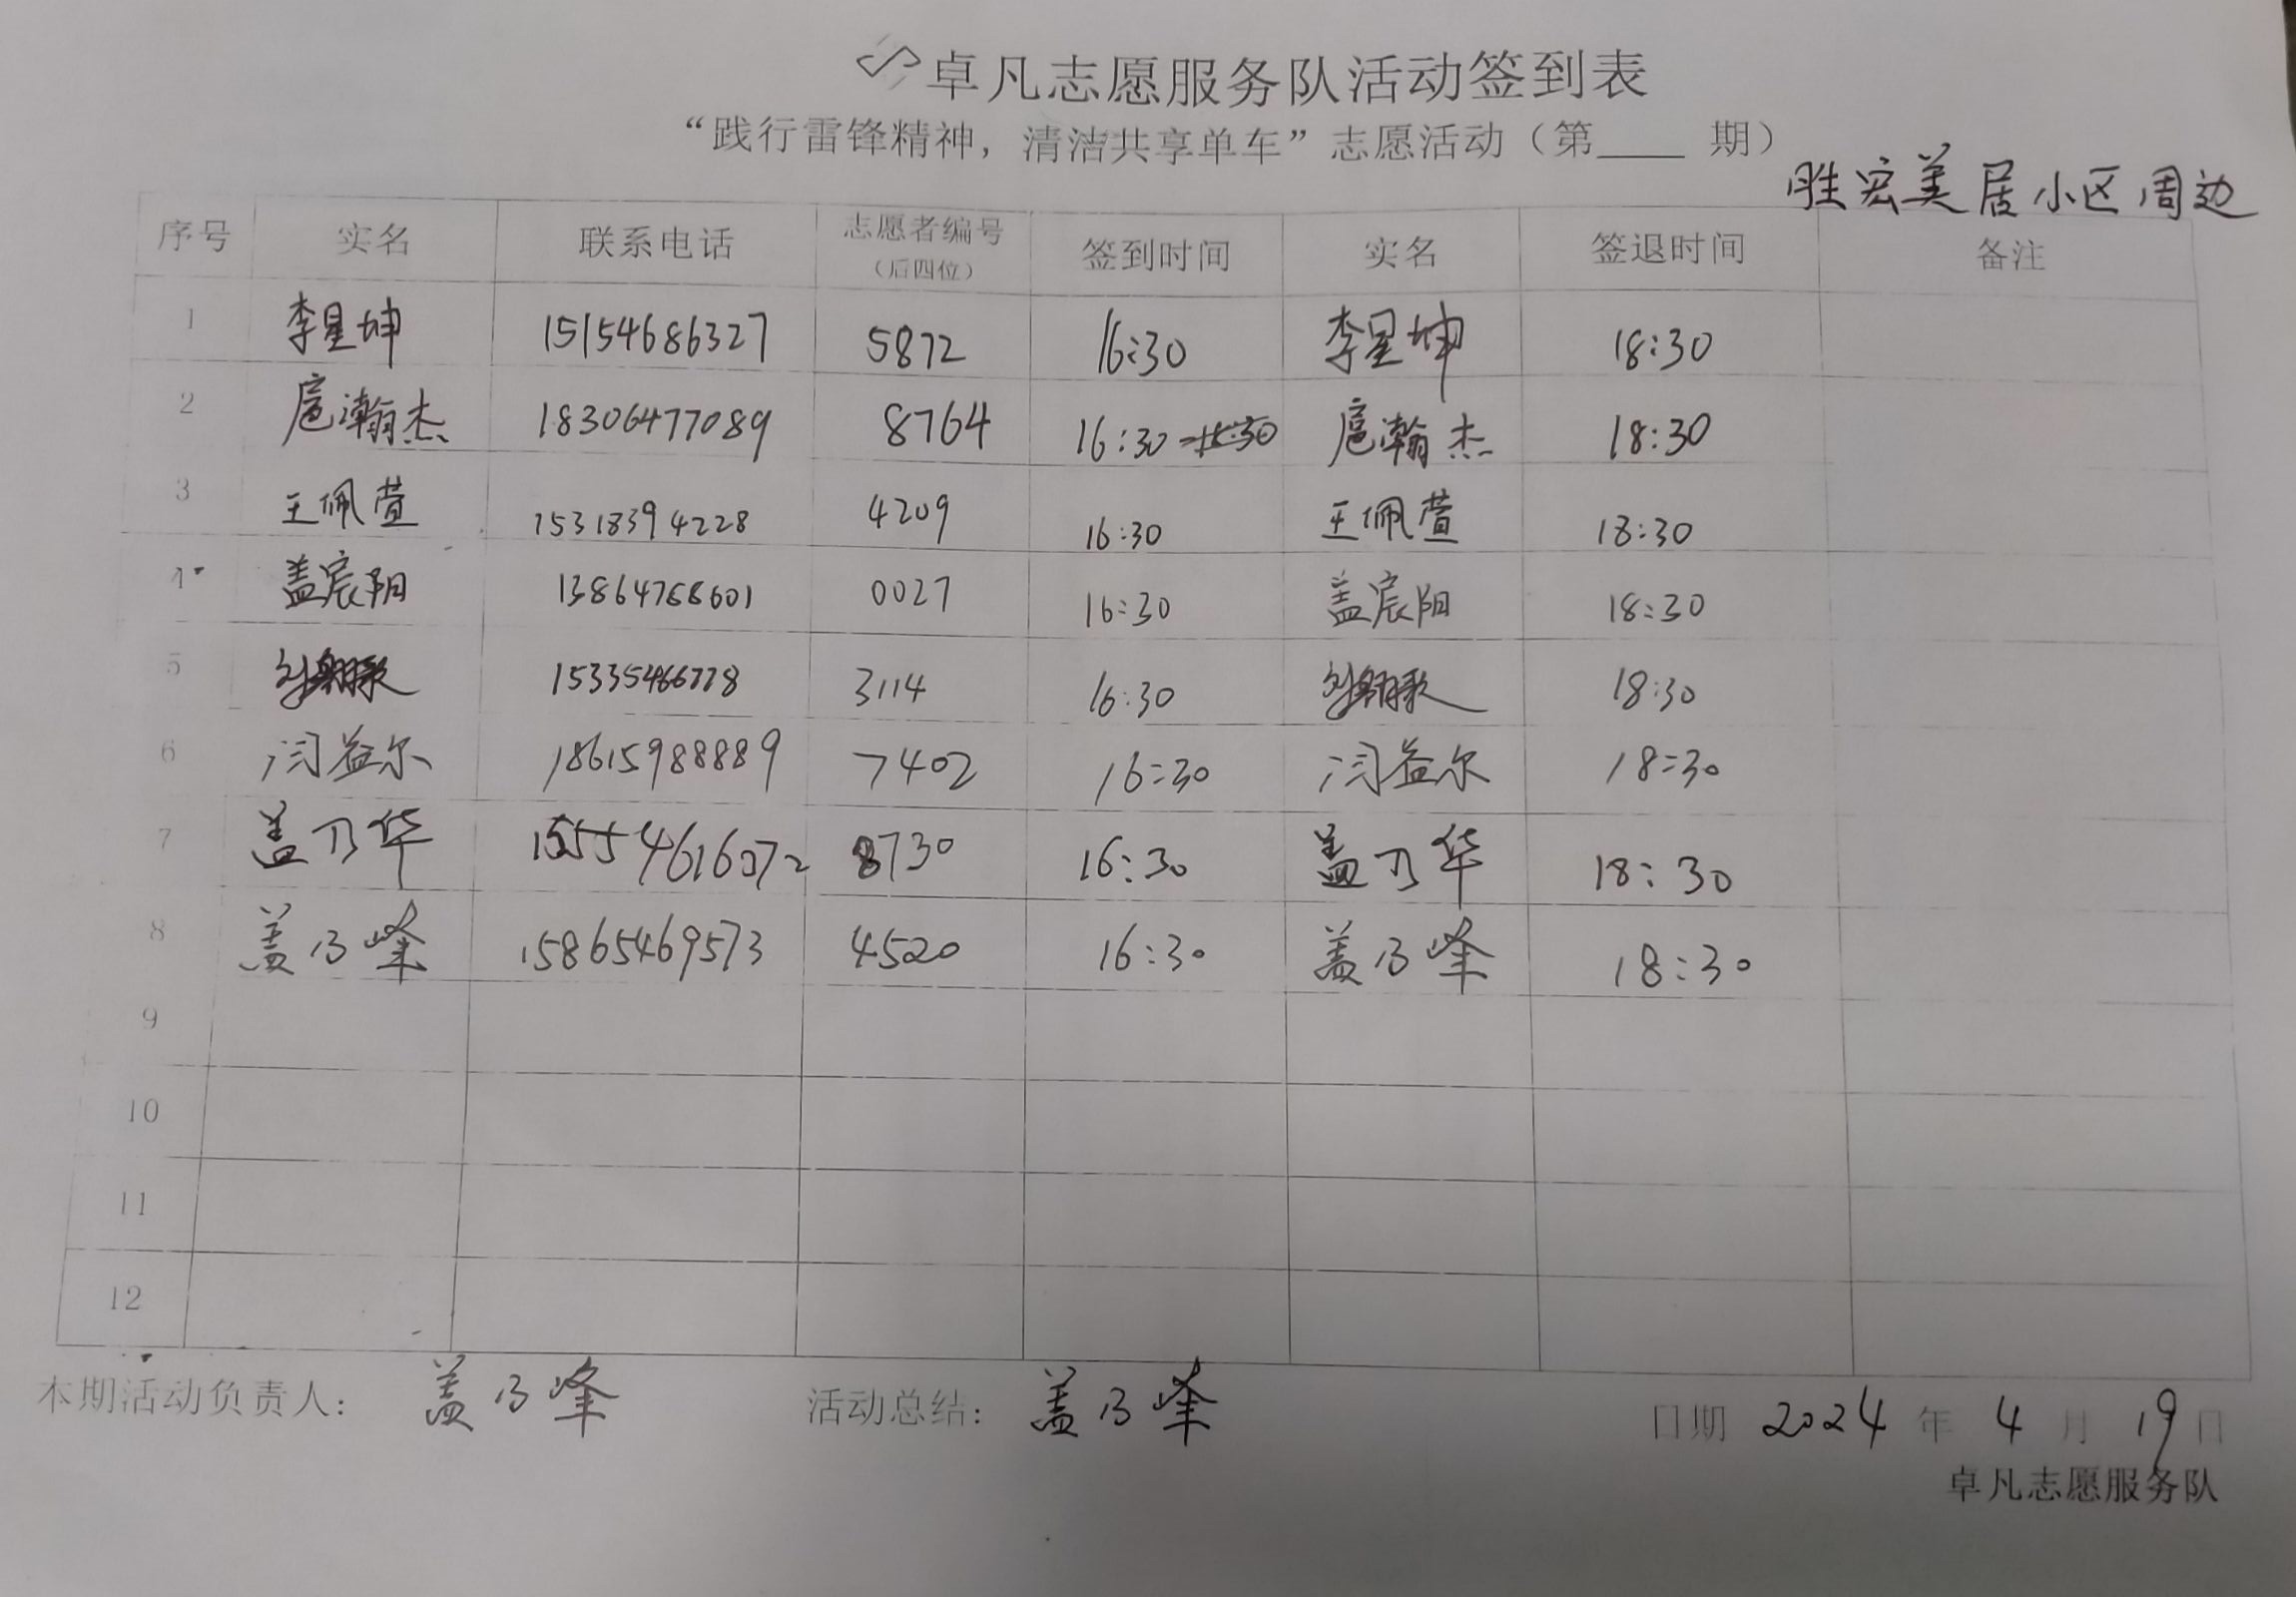 卓凡志愿服务队活动签到表
“践行雷锋精神，清洁共享单车”志愿活动（第____期）
胜宏美居小区周边
序号 实名 联系电话 志愿者编号（后四位） 签到时间 实名 签退时间 备注
1 李星坤 15154686327 5872 16:30 李星坤 18:30
2 扈瀚杰 18306477089 8764 16:30 扈瀚杰 18:30
3 王佩萱 15318394228 4209 16:30 王佩萱 18:30
4 盖宸阳 13864768601 0027 16:30 盖宸阳 18:30
5 15335466778 3114 16:30 18:30
6 闫益尔 18615988889 7402 16:30 闫益尔 18:30
7 盖乃华 15554616072 8730 16:30 盖乃华 18:30
8 盖乃峰 15865469573 4520 16:30 盖乃峰 18:30
9
10
11
12
本期活动负责人： 盖乃峰 活动总结： 盖乃峰 日期 2024 年 4 月 19 日
卓凡志愿服务队